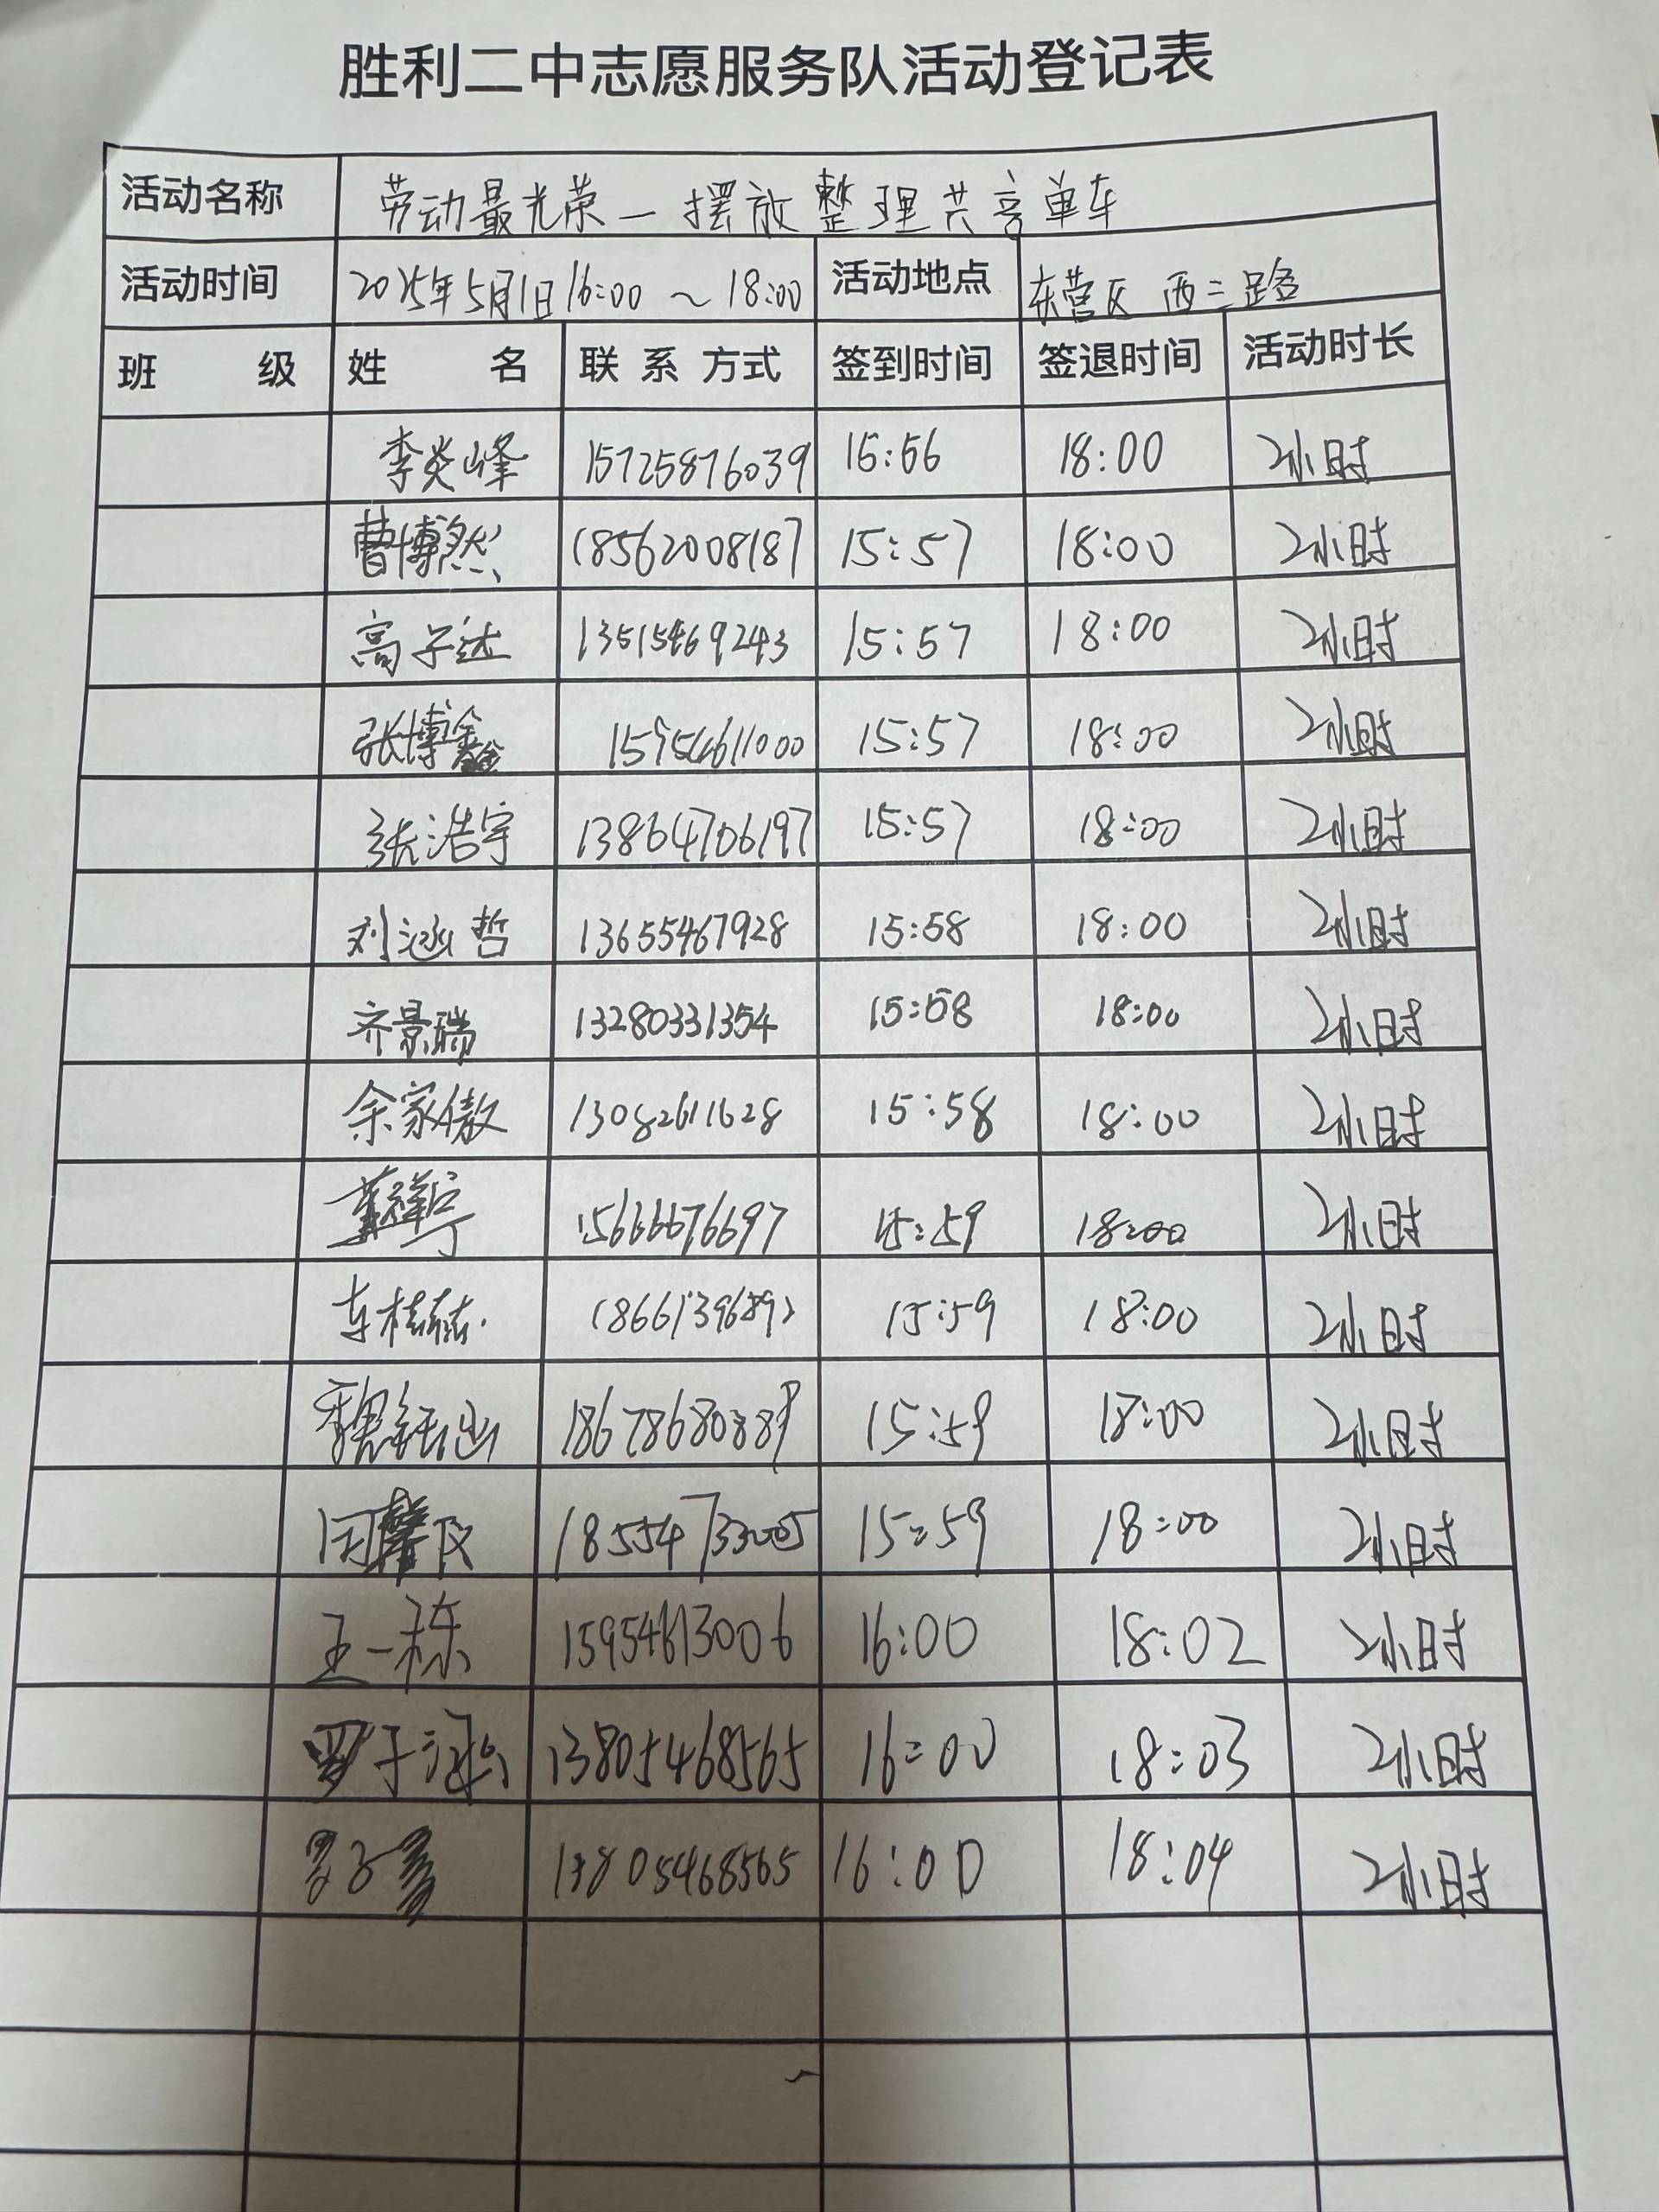 胜利二中志愿服务队活动登记表
活动名称 劳动最光荣—摆放整理共享单车
活动时间 2025年5月1日16:00～18:00 活动地点 东营区西二路
班级 姓名 联系方式 签到时间 签退时间 活动时长
李炎峰 15725876039 15:56 18:00 2小时
曹博然 18562008187 15:57 18:00 2小时
高子达 13515469243 15:57 18:00 2小时
张博鑫 15954611000 15:57 18:00 2小时
张浩宇 13864706197 15:57 18:00 2小时
刘涵哲 13655467928 15:58 18:00 2小时
齐景瑞 13280331354 15:58 18:00 2小时
余家傲 13082611628 15:58 18:00 2小时
董祥宇 15666676697 15:59 18:00 2小时
15:59 18:00 2小时
魏钰山 15:59 18:00 2小时
闫馨仪 18554733005 15:59 18:00 2小时
王一栋 15954613006 16:00 18:02 2小时
罗子涵 13805468565 16:00 18:03 2小时
13805468565 16:00 18:04 2小时